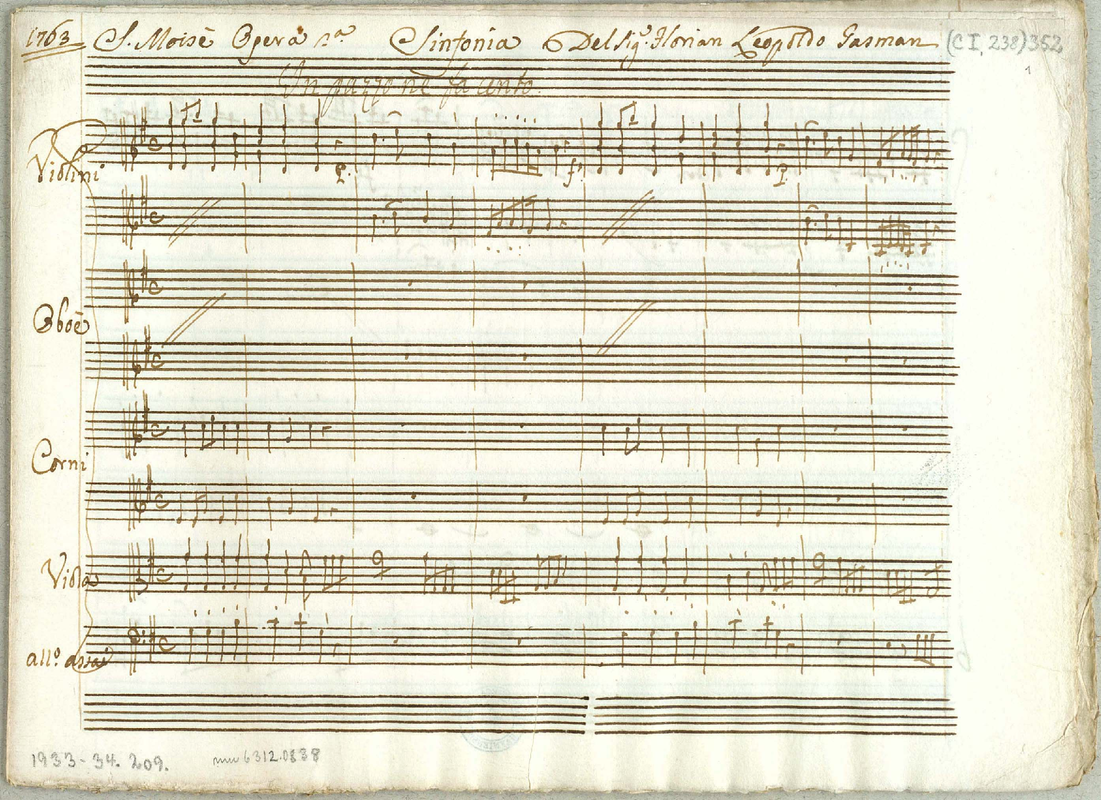 1763 S. Moisè Opera 1ª Sinfonia Del Sigʳ. Florian Leopoldo Gasman (C I, 238) 352
1
Un pazzo ne fa cento.
Violini
p. f p
Oboè
Corni
Viola
all.º assai
1933-34. 209. mw 6312.0838